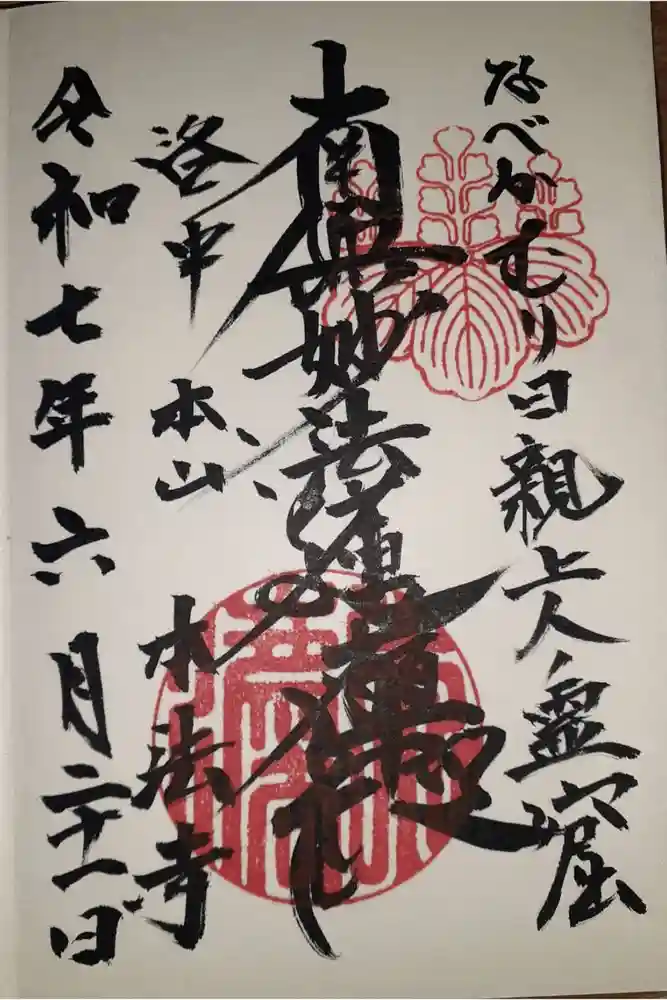 なべかむり日親上人霊窟
南無妙法蓮華経
洛中
本山
本法寺
令和七年六月二十一日